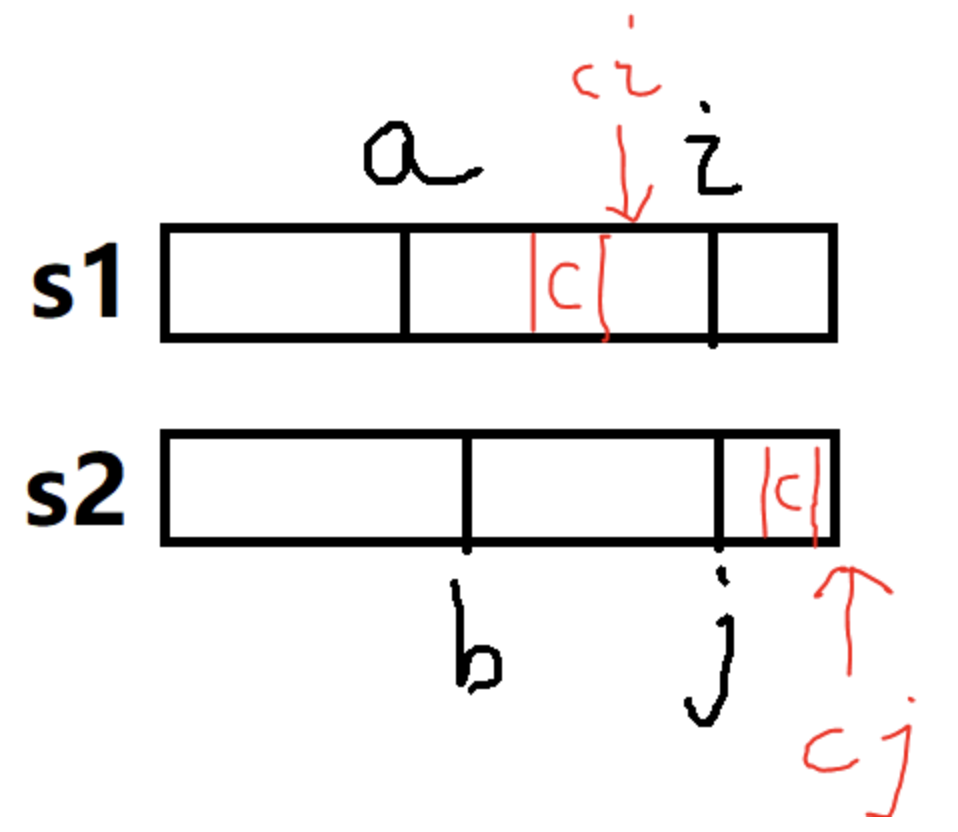 ci
a i
s1 c
s2 c
b j
cj